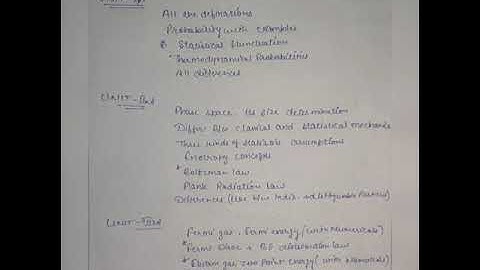 All the definations
Probability with examples
Statical fluctuation
Thermodynamical Probabilities
All diffences
UNIT - IInd
Phase space its size determination
Differ b/w classical and statistical mechanics
Three kinds of statistical assumptions
Entropy concepts
* Boltzman law
Plank Radiation Law
Differences (like b/w
UNIT - IIIrd
Fermi gas, Fermi energy (with Numericals)
* Fermi Dirac + B.E distribution law
* gas, zero Point Energy (with Numericals)